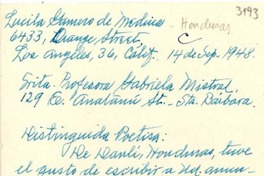 Lucila Gamero de Medina
Honduras
3193
6433, Orange, Street
C
Los Angeles, 36, Calif. 14 de Sep. 1948.
Srita. Profesora Gabriela Mistral
129 Anapamu St. - Sta. Bárbara.
Distinguida Poetisa:
De Danlí, Honduras, tuve
el gusto de escribir a Ud.